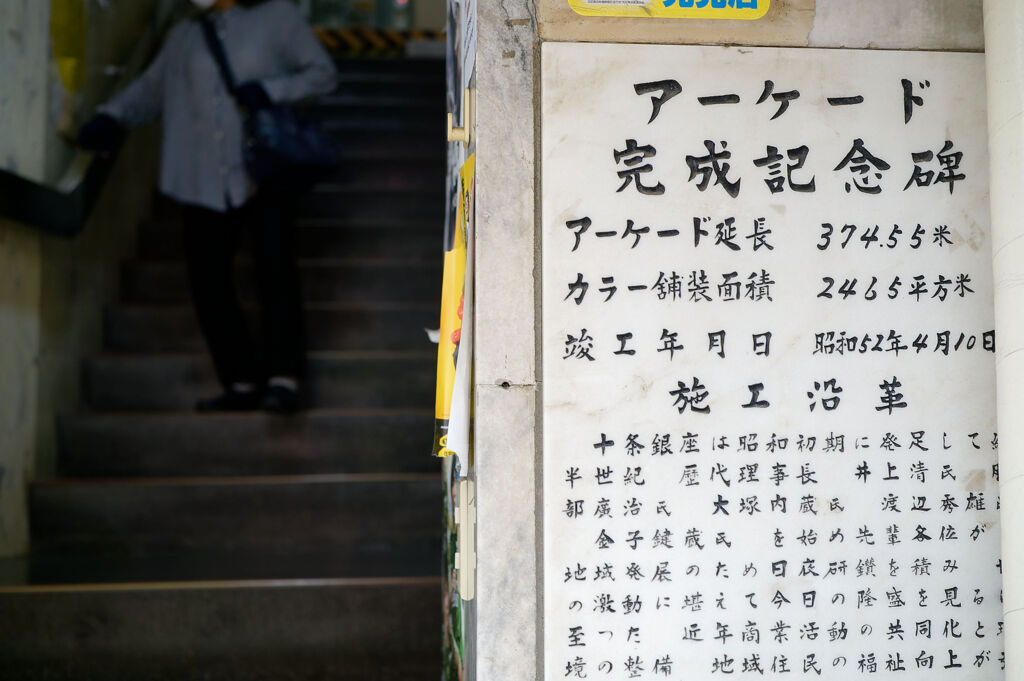 アーケード
完成記念碑
アーケード延長 374.55米
カラー舗装面積 2465平方米
竣工年月日 昭和52年4月10日
施工沿革
十条銀座は昭和初期に発足して
半世紀 歴代理事長 井上清氏
部廣治氏 大塚内蔵氏 渡辺秀雄
金子鍵蔵氏を始め先輩各位が
地域発展のため日夜研鑽を積み
の激動に堪えて今日の隆盛を見る
至った 近年商業活動の共同化と
境の整備 地域住民の福祉向上が